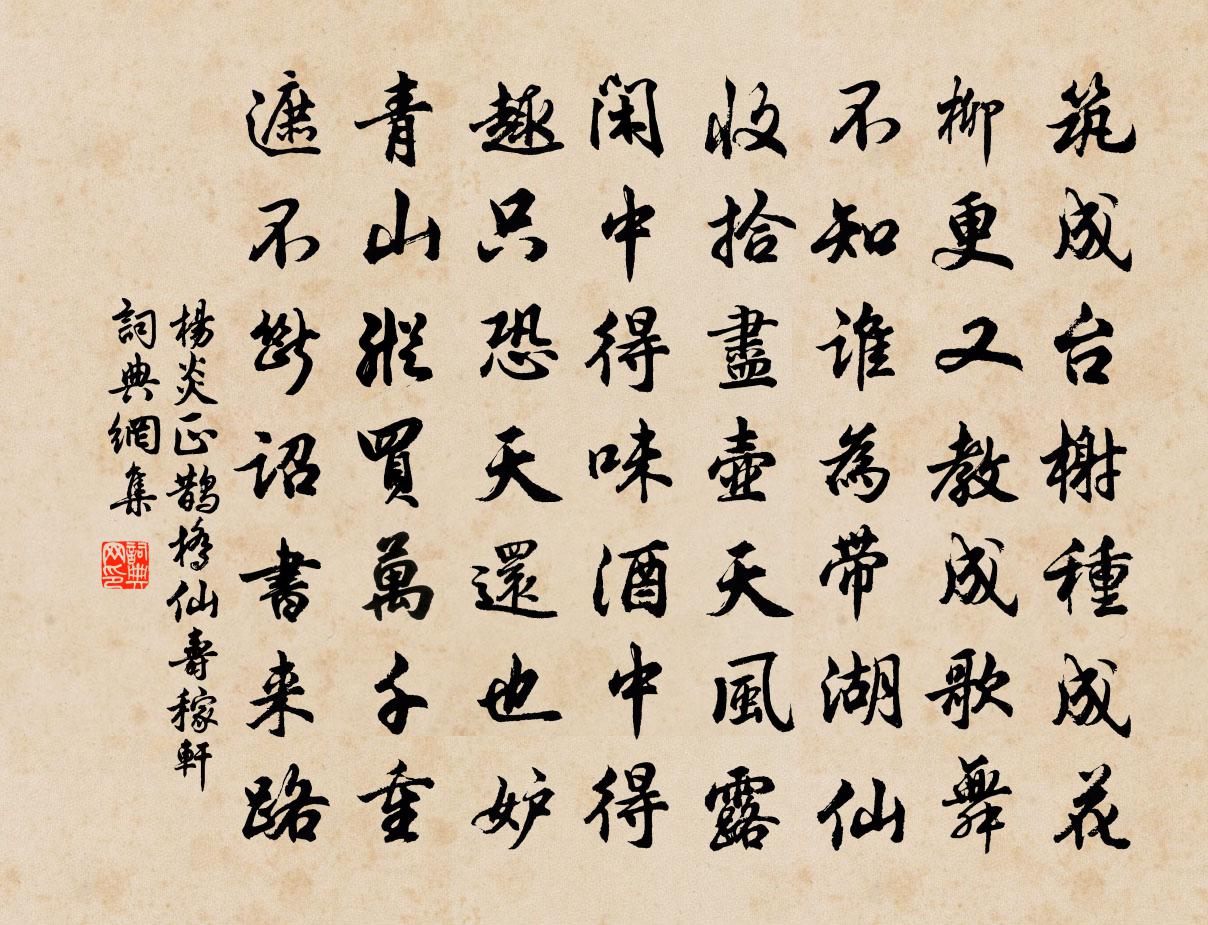 筑成台榭種成花
柳更又教成歌舞
不知誰為帶湖仙
收拾盡壺天風露
閑中得味酒中得
趣只恐天還也妒
青山縱買萬千重
遮不斷詔書来路
楊炎正鵲橋仙壽稼軒
詞典網集
詞典网印